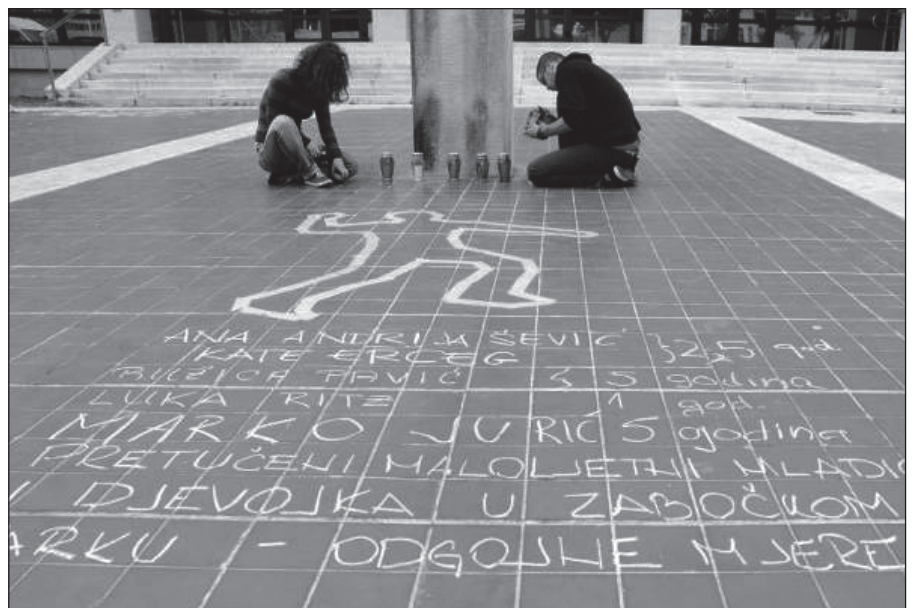 ANA ANDRIJAŠEVIĆ god.
KATE ERCEG
RUŽICA PAVIĆ 5 godina
LUKA RITZ 1 god.
MARKO JURIĆ 5 godina
PRETUČENI MALOLJETNI MLADIĆ
I DJEVOJKA U ZABOČKOM
ARKU - ODGOJNE MJERE